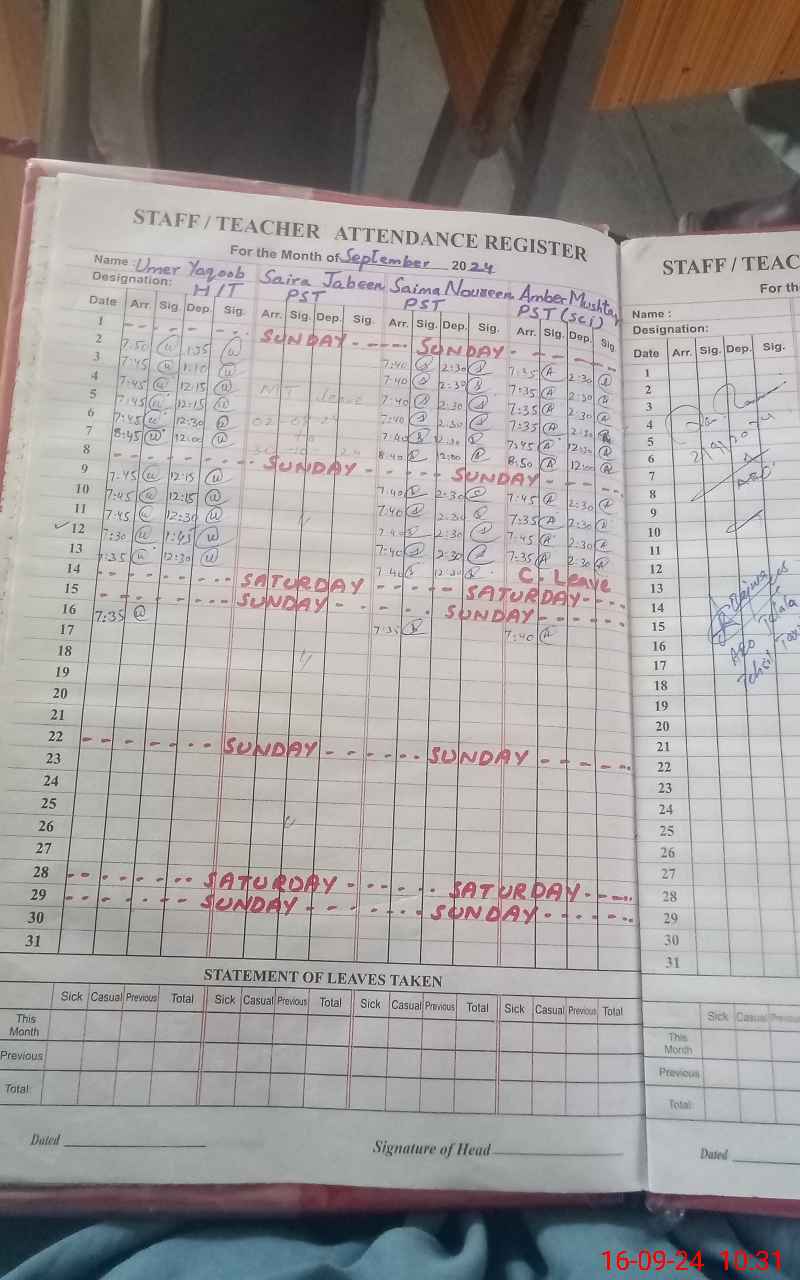 STAFF / TEACHER ATTENDANCE REGISTER
For the Month of September 2024
Name : Umer Yaqoob Saira Jabeen Saima Noureen Amber Mushtaq
Designation: H/T PST PST PST (sci)
Date Arr. Sig. Dep. Sig. Arr. Sig. Dep. Sig. Arr. Sig. Dep. Sig. Arr. Sig. Dep. Sig.
1 SUNDAY SUNDAY
2 7:50 1:35 7:40 2:30 7:35 2:30
3 7:45 1:10 7:40 2:30 7:35 2:30
4 7:45 12:15 MT Leave 7:40 2:30 7:35 2:30
5 7:45 12:15 7:40 2:30 7:35 2:30
6 7:45 12:30 7:40 12:30 7:45 12:30
7 8:45 12:00 8:40 12:00 8:50 12:00
8 SUNDAY SUNDAY
9 7:45 12:15 7:40 2:30 7:45 2:30
10 7:45 12:15 7:40 2:30 7:35 2:30
11 7:45 12:30 7:40 2:30 7:45 2:30
12 7:30 1:45 7:40 2:30 7:35 2:30
13 7:35 12:30 7:40 12:30 C. Leave
14 SATURDAY SATURDAY
15 SUNDAY SUNDAY
16 7:35 7:35 7:40
17
18
19
20
21
22 SUNDAY SUNDAY
23
24
25
26
27
28 SATURDAY SATURDAY
29 SUNDAY SUNDAY
30
31
STATEMENT OF LEAVES TAKEN
Sick Casual Previous Total Sick Casual Previous Total Sick Casual Previous Total Sick Casual Previous Total
This Month
Previous
Total:
Dated Signature of Head
STAFF / TEAC
For th
Name :
Designation:
Date Arr. Sig. Dep. Sig.
1
2
3
4
5
6
7
8
9
10
11
12
13
14
15
16
17
18
19
20
21
22
23
24
25
26
27
28
29
30
31
Sick Casual Previous
This Month
Previous
Total:
Dated
16-09-24 10:31